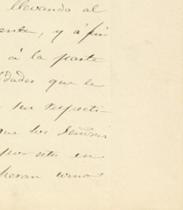 llevando al
ente, y á fin
á la parte
dades que le
su respecti-
que los Señores
por sita en